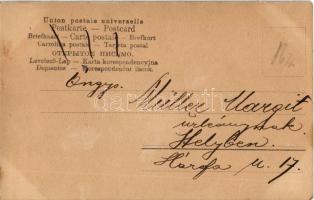 Union postale universelle
Postkarte — Postcard
Briefkaart — Carte postale — Brefkort
Cartolina postale — Tarjeta postal
ОТКРЫТОЕ ПИСЬМО.
Levelező-Lap — Karta korespondencyjna
Dopisnice — Korespondenční lístek.
Müller Margit
úrleánynak
Helyben.
Hársfa u. 17.